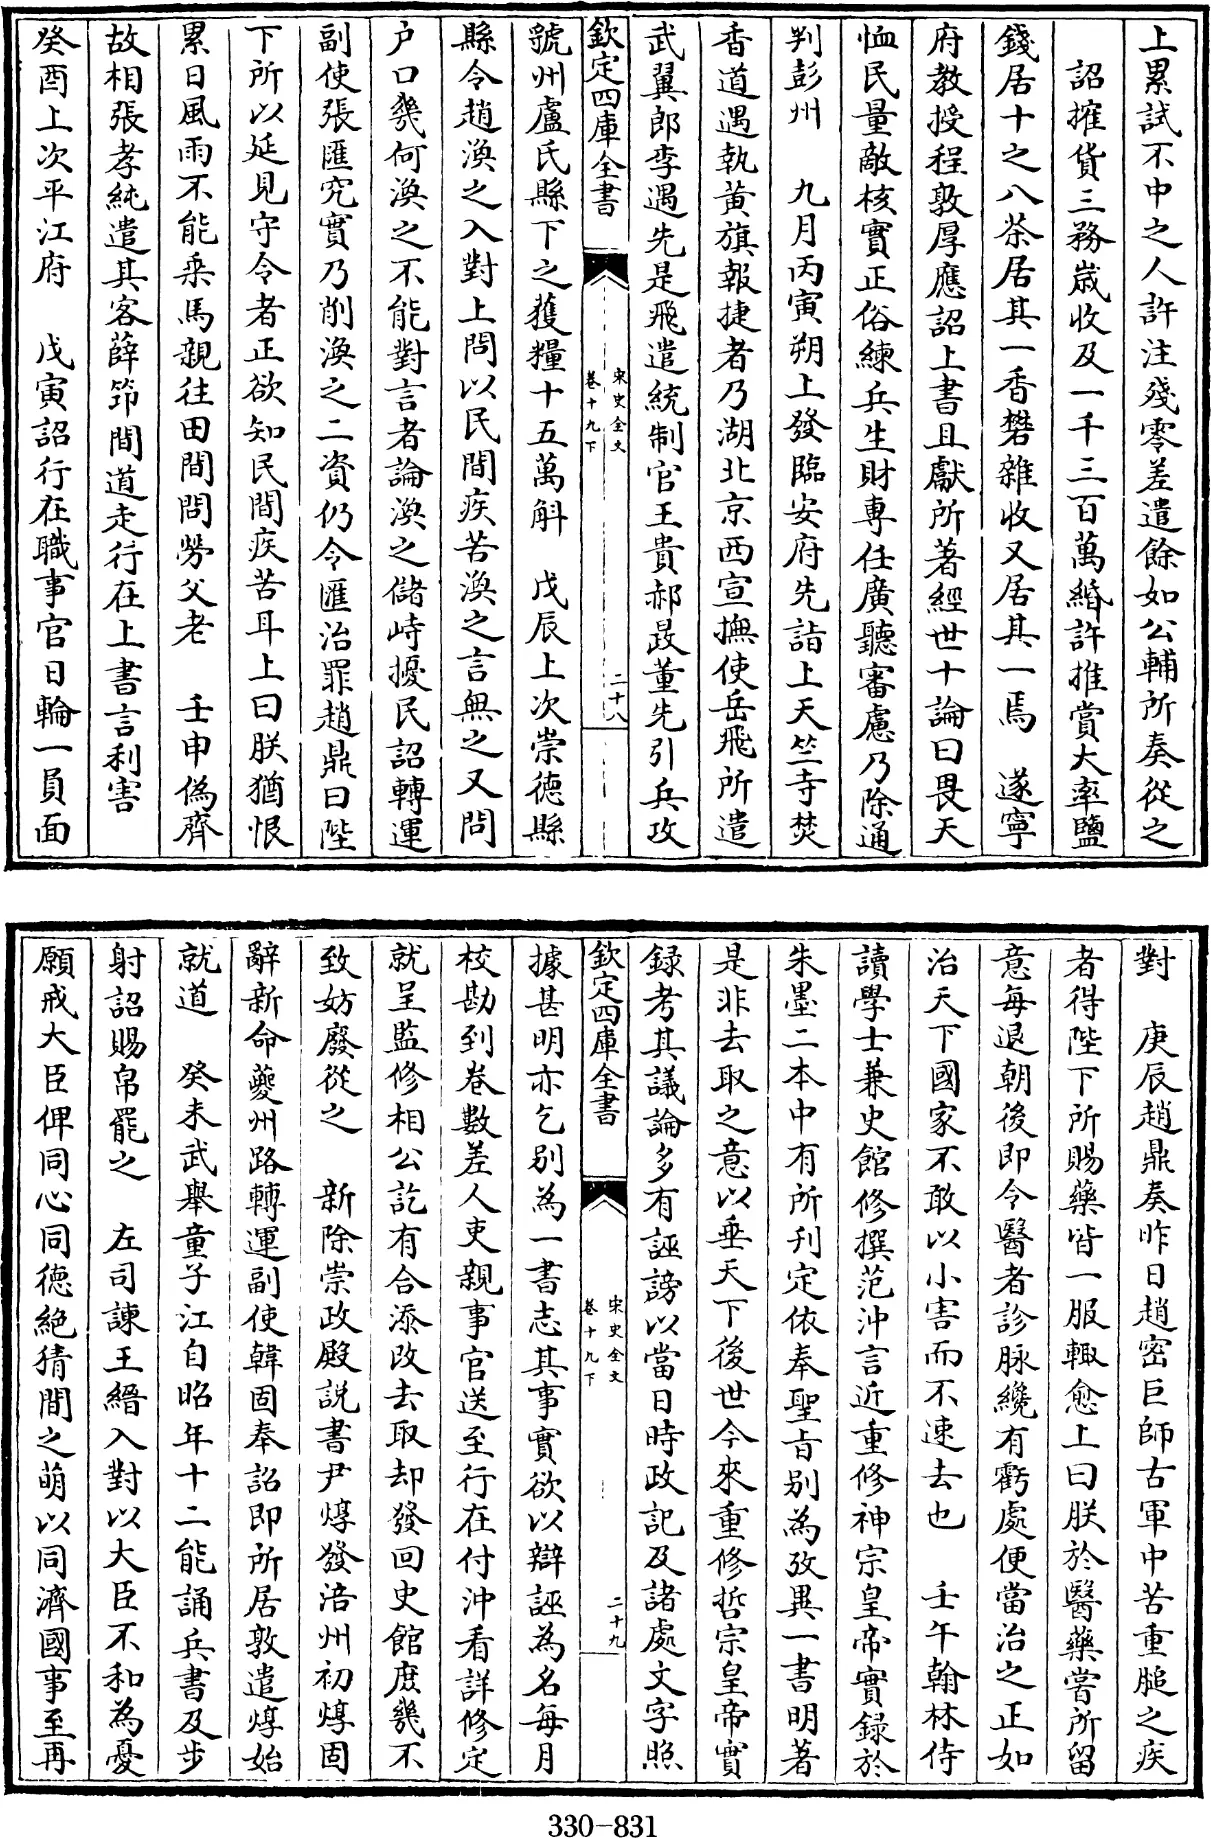 上累試不中之人許注殘零差遣餘如公輔所奏從之
詔搉貨三務歳收及一千三百萬緡許推賞大率鹽
錢居十之八茶居其一香礬雜收又居其一焉　遂寧
府教授程敦厚應詔上書且獻所著經世十論曰畏天
恤民量敵核實正俗練兵生財専任廣聽審慮乃除通
判彭州　九月丙寅朔上發臨安府先詣上天竺寺焚
香道遇執黄旗報捷者乃湖北京西宣撫使岳飛所遣
武翼郎李遇先是飛遣統制官王貴郝晸董先引兵攻
欽定四庫全書
宋史全文
卷十九下
二十八
虢州盧氏縣下之獲糧十五萬斛　戊辰上次崇德縣
縣令趙渙之入對上問以民間疾苦渙之言無之又問
户口幾何渙之不能對言者論渙之儲峙擾民詔轉運
副使張匯究實乃削渙之二資仍令匯治罪趙鼎曰陛
下所以延見守令者正欲知民間疾苦耳上曰朕猶恨
累日風雨不能乘馬親往田間問勞父老　壬申偽齊
故相張孝純遣其客薛筇間道走行在上書言利害
癸酉上次平江府　戊寅詔行在職事官日輪一員面
對　庚辰趙鼎奏昨日趙密巨師古軍中苦重膇之疾
者得陛下所賜藥皆一服輙愈上曰朕於醫藥嘗所留
意每退朝後即令醫者診脉纔有虧處便當治之正如
治天下國家不敢以小害而不速去也　壬午翰林侍
讀學士兼史館修撰范沖言近重修神宗皇帝實録於
朱墨二本中有所刋定依奉聖旨别為攷異一書明著
是非去取之意以垂天下後世今來重修哲宗皇帝實
録考其議論多有誣謗以當日時政記及諸處文字照
欽定四庫全書
宋史全文
卷十九下
二十九
據甚明亦乞别為一書志其事實欲以辯誣為名每月
校勘到卷數差人吏親事官送至行在付沖看詳修定
就呈監修相公訖有合添改去取却發回史館庶幾不
致妨廢從之　新除崇政殿説書尹焞發涪州初焞固
辭新命夔州路轉運副使韓固奉詔即所居敦遣焞始
就道　癸未武舉童子江自昭年十二能誦兵書及步
射詔賜帛罷之　左司諫王縉入對以大臣不和為憂
願戒大臣俾同心同徳絶猜間之萌以同濟國事至再
330-831